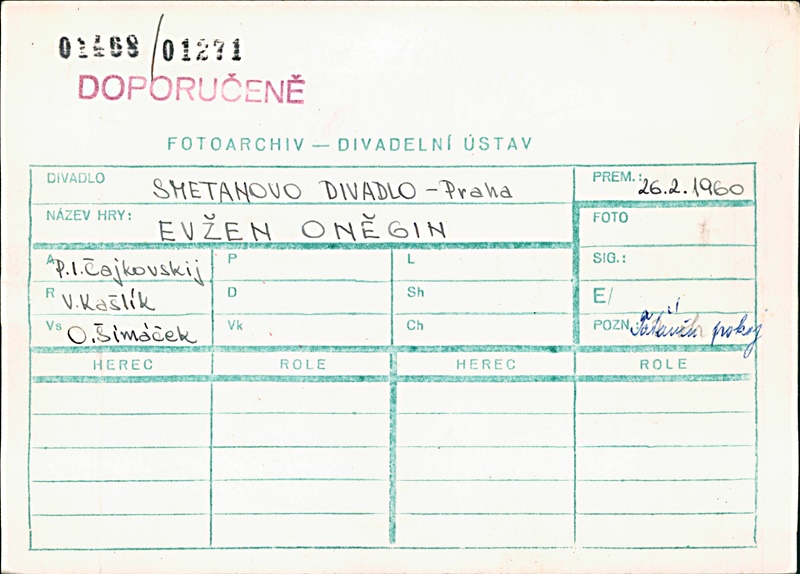 01468/01271
DOPORUČENĚ
FOTOARCHIV — DIVADELNÍ ÚSTAV
DIVADLO SMETANOVO DIVADLO - Praha PREM.: 26.2.1960
NÁZEV HRY: EVŽEN ONĚGIN FOTO
A P.I.Čajkovskij P L SIG.:
R V.Kašlík D Sh E/
Vs O.Šimáček Vk Ch POZN. pokoj
HEREC ROLE HEREC ROLE